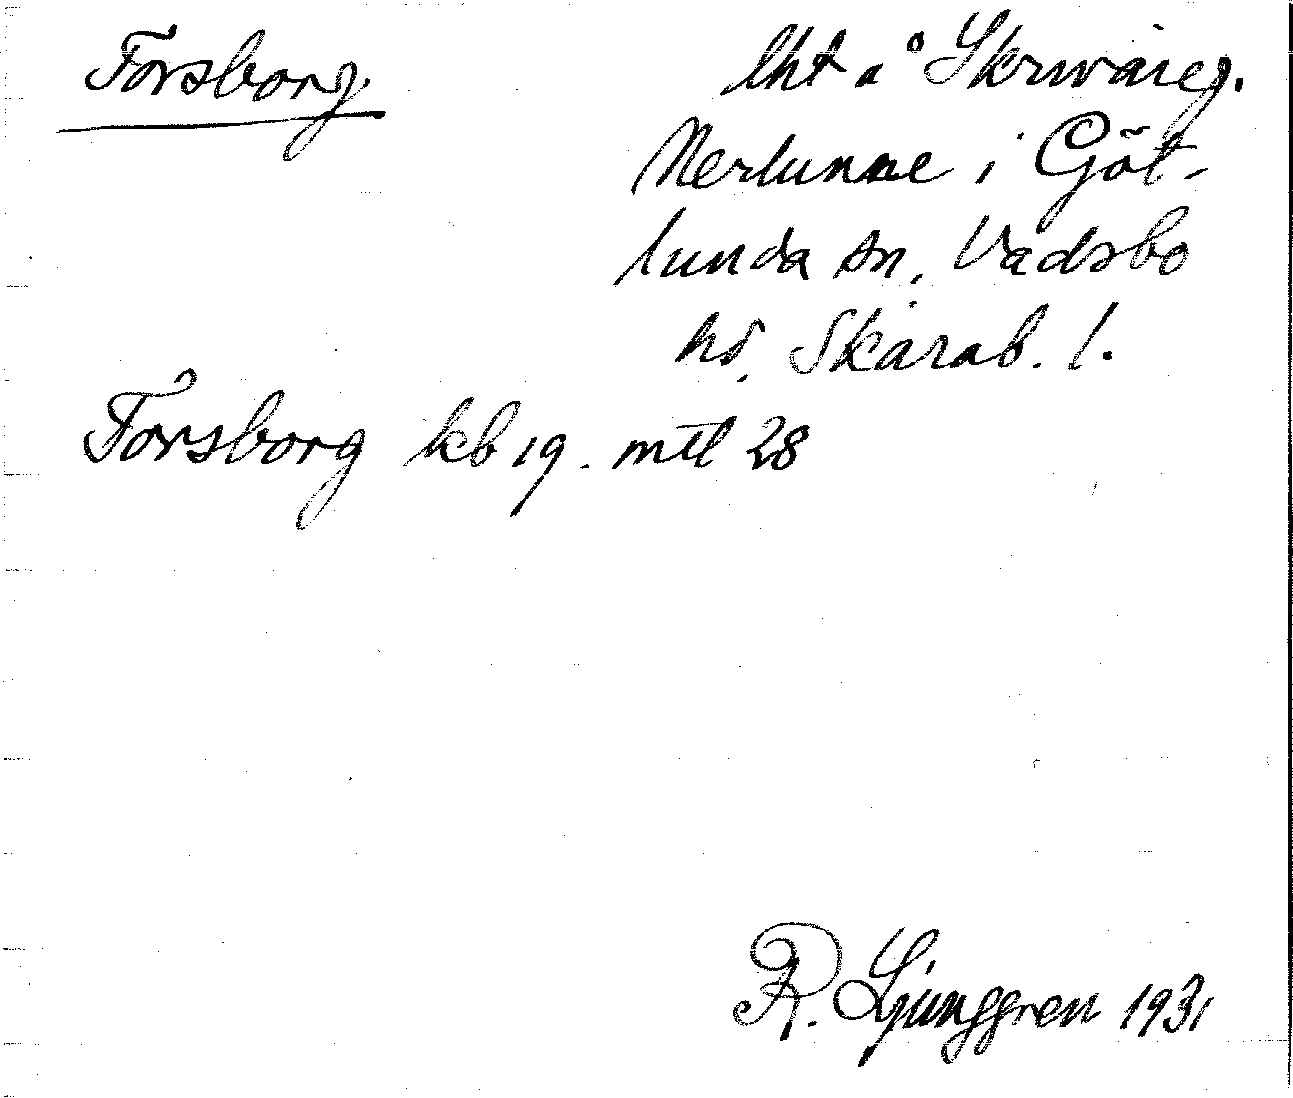 Forsborg.
lht å Skrwäreg.
Nerlunne i Göt-
lunda sn, Vadsbo
hd, Skarab. l.
Forsborg kb 19. mtl 28
R. Ljunggren 1931